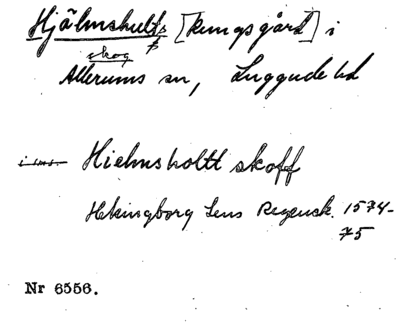 Hjälmshults [kungsgård] i
skog
Allerums sn, Luggude hd
Hielmsholtt skoff
Helsingborg Lens Regensk. 1574-
75
Nr 6556.